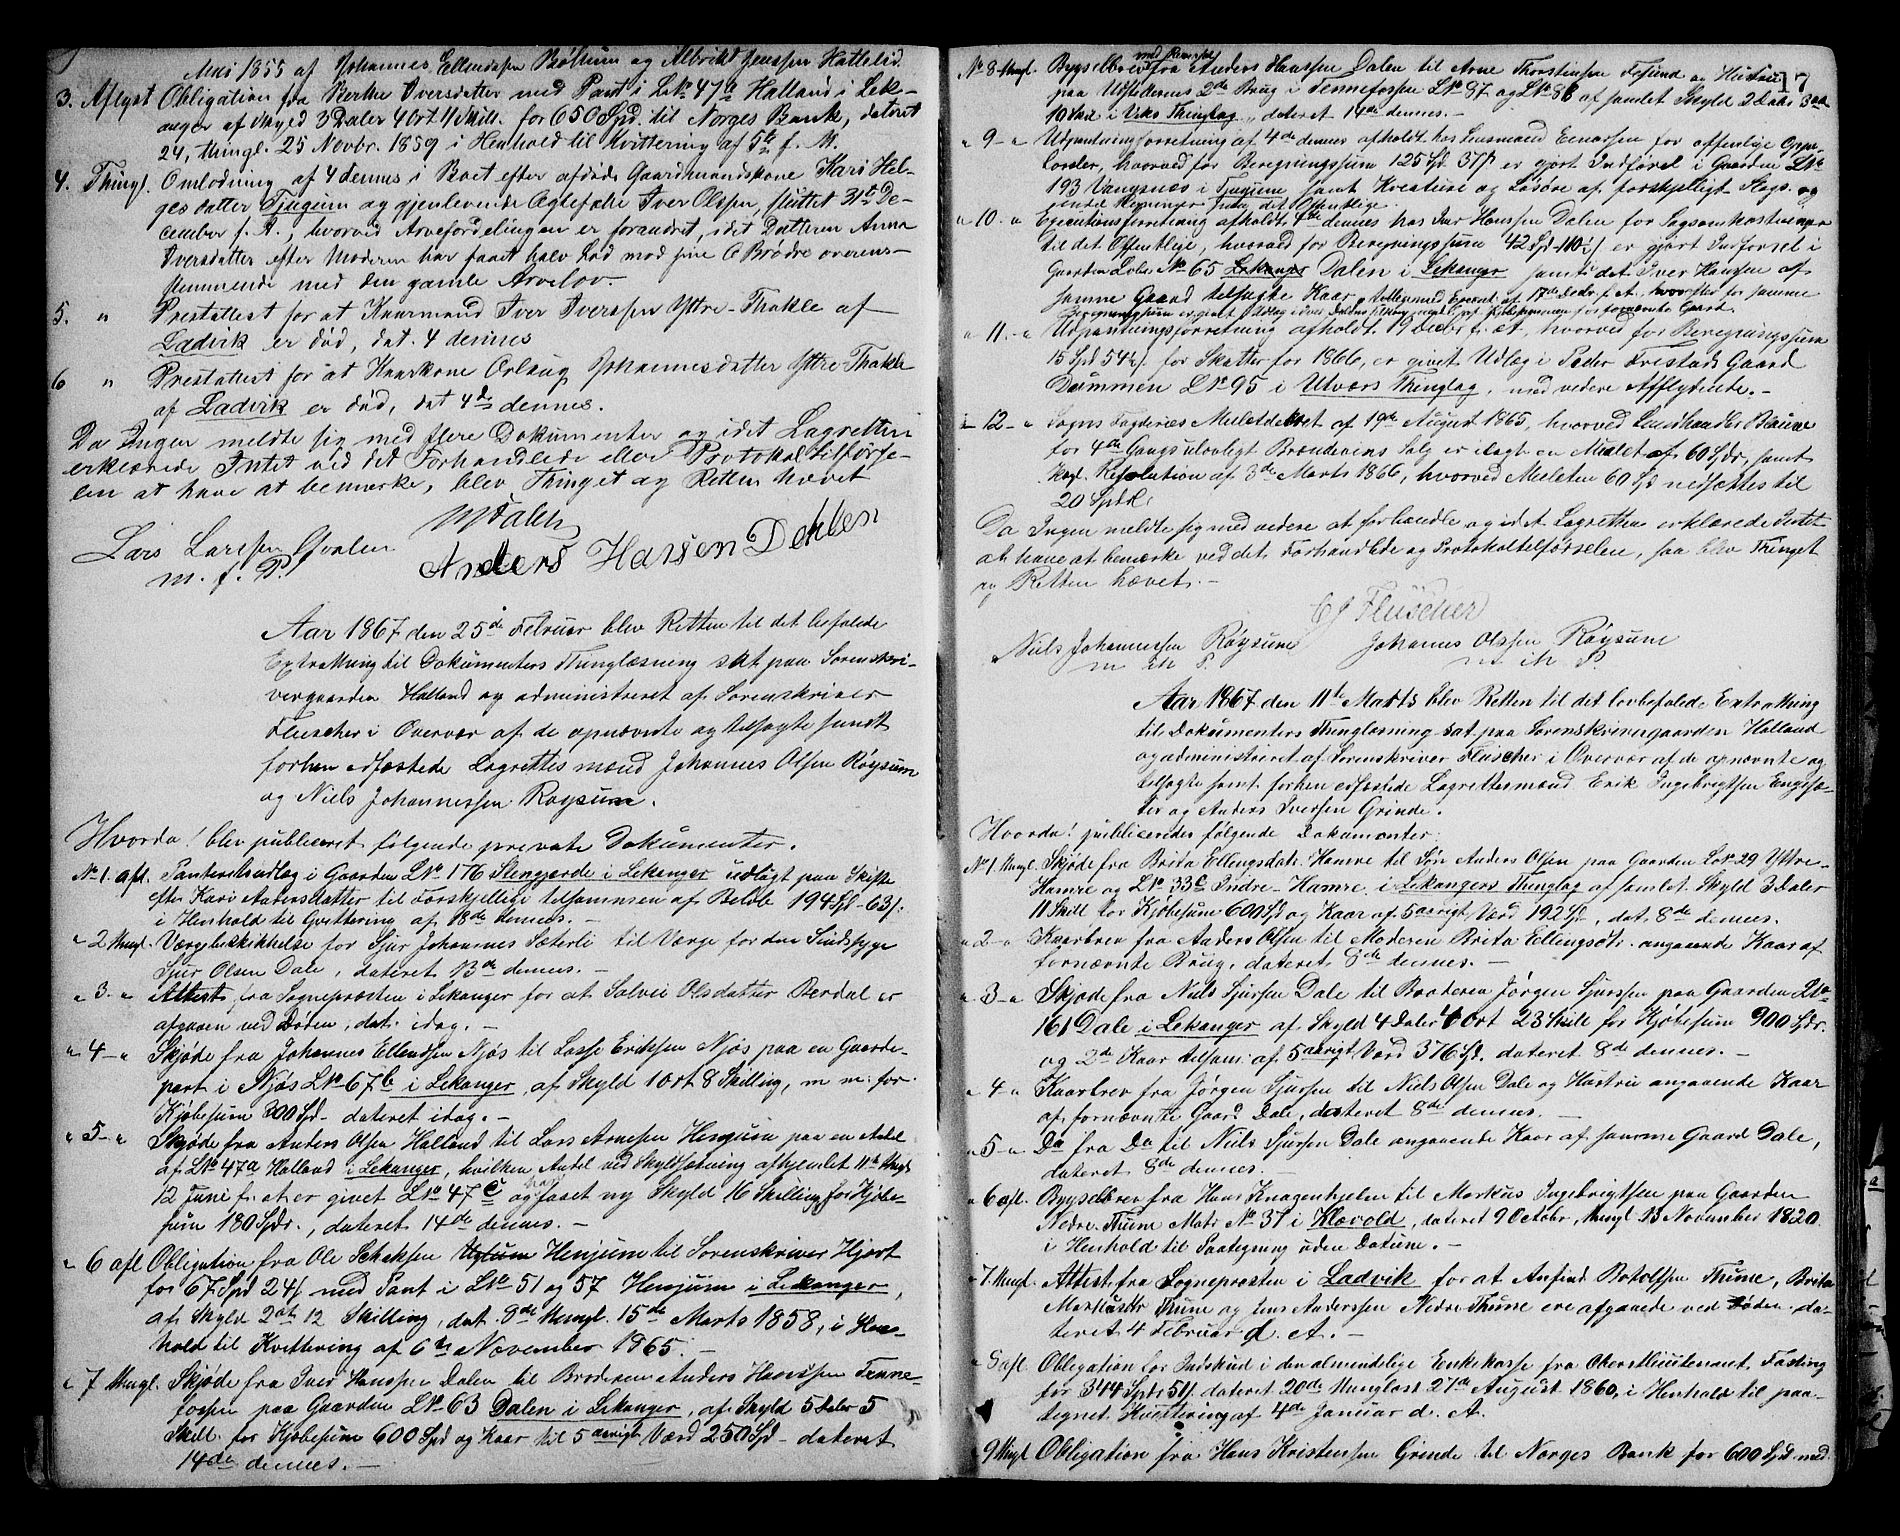 Mai 1855 af Johannes Ellendsen Bøthun og Albrikt Jenssen Hattelid.
3. Aflyst Obligation fra Berthe Iversdatter med Pant i L.No 47a Halland i Lek-
anger af Skyld 3 Daler 4 ort 11 Skill. for 650 Spd. til Norges Bank, dateret
24, thingl. 25 Novbr. 1859 i Henhold til Kvittering af 5te f. M.
4. Thingl. Omlodning af 4 dennes i Boet efter afdøde Gaardmandskone Kari Hel-
gesdatter Tjugum og gjenlevende Ægtefælle Iver Olssen, sluttet 31te De-
cember f. A., hvorved Arvefordelingen er forandret, idet Datteren Anna
Iversdatter efter Moderen har faaet halv Lod mod sine 6 Brødre overens-
stemmende med den gamle Arvelov.
5. " Prestattest for at Kaarmand Iver Iverssen Yttre-Thakle af
Ladvik er død, dat. 4 dennes
6 " Prestattest for at Kaarkone Orlaug Johannesdatter Yttre Thakle
af Ladvik er død, dat 4de dennes.
Da Ingen meldte sig med flere Dokumenter og idet Lagretten
erklærede Intet ved det Forhandlede eller Protokoltilførse-
len at have at bemærke, blev Thinget og Retten hævet
MDalen
Lars Larssen Qvalen Anders Hansen Dahlen
m. f. P.
Aar 1867 den 25de Februar blev Retten til det befalede
Extrathing til Dokumenters Thinglæsning sat paa Sorenskri-
vergaarden Halland og administreret af Sorenskriver
Fleischer i Overvær af de opnævnte og tilsagte samt
forhen edfæstede Lagrettesmænd Johannes Olsen Røysum
og Niels Johannessen Røysum.
Hvorda! blev publiceret følgende private Dokumenter.
No 1. afl. Panteretsudlæg i Gaarden L.No 176 Slengjerde i Lekanger udlagt paa Skifte
efter Kari Andersdatter til Forskjellige tilsammen af Beløb 194 Spd - 63 s.
i Henhold til Qvittering af 18de dennes. -
" 2 thingl. Værgebeskikkelse for Sjur Johannes Sæterli til Værge for den Sindssyge
Sjur Olsen Dale, dateret 13de dennes. -
" 3 - " Attest fra Sognepræsten i Lekanger for at Salvei Olsdatter Berdal er
afgaaen ved Døden, dat. idag. -
" 4 - " Skjøde fra Johannes Ellendsen Njøs til Lasse Eriksen Njøs paa en Gaarde-
part i Njøs L.No 67b i Lekanger, af Skyld 1 ort 8 Skilling, m. m. for
Kjøbesum 300 Spd - dateret idag. -
" 5 - " Skjøde fra Anders Olsen Halland til Lars Arnesen Henjum paa en Andel
af L.No 47a Halland i Lekanger, hvilken Andel ved Skyldsætning afhjemlet 11te thingl
12 Juni f. A. er givet L.No 47c og faaet ny Skyld 16 Skilling, for Kjøbe-
sum 180 Spdr., dateret 14de dennes. -
" 6 afl Obligation fra Ole Schaksen Henjum til Sorenskriver Hjort
for 67 Spd 24 s med Pant i L.No 51 og 57 Henjum i Lekanger,
af Skyld 2 ort 12 Skilling, dat. 8de thingl. 15de Marts 1858, i Hen-
hold til Kvittering af 6te November 1865. -
" 7 thingl. Skjøde fra Iver Hanssen Dalen til Broderen Anders Hanssen Tenne-
fossen paa Gaarden L.No 63 Dalen i Lekanger, af Skyld 5 Daler 5
Skill. for Kjøbesum 600 Spd og Kaar til 5 aarigt Værd 250 Spd - dateret
14de dennes. -
17
No 8 thingl. Bygselbrev med Revers fra Anders Hanssen Dalen til Arne Thorstensen
paa Udstederens 2de Brug i Tennefossen L.No 87 og L.No 88 af samlet Skyld 2 Daler 3 ort
10 Skill i Viks Thinglag, dateret 14de dennes. -
" 9 - " Udpantningsforretning af 4de dennes afholdt hos Lensmand Einarsen for offentlige Oppe-
borsler, hvorved for Beregningssum 125 Spd 37 s er gjort Indførsel i Gaarden L.No
193 Vangsnæs i Tjugum samt Kreature og Løsøre af forskjelligt Slags. og
" 10. " Executionsforretning afholdt 4de dennes hos Iver Hanssen Dalen for Sagsomkostninger
til det Offentlige, hvorved for Beregningssum 42 Spd - 110½ s er gjort Indførsel i
Gaarden Løbe No 65 Lekanger Dalen i Lekanger samt i det Iver Hanssen af
samme Gaard tilsagte Kaar
" 11. - " Udpantningsforretning afholdt 19 Decbr. f. A., hvorved for Beregningssum
15 Spd 54½ s for Skatter for 1866, er givet Udlæg i Peder Frestads Gaard
Dummen L.No 95 i Utværs Thinglag, med vedere Afflydende. -
" 12 - " Sogns Fogderies Mulctdekret af 19de August 1865, hvorved Landhandler Baune
for 4de Gangs ulovligt Brændevins Salg er ilagt en Mulct af 60 Spdr, samt
kgl. Resolution af 3de Marts 1866, hvorved Mulcten 60 Spd nedsættes til
20 Spdlr.
Da Ingen meldte sig med vedere at forhandle og idet Lagretten erklærede Intet
at have at bemærke ved det Forhandlede og Protokoltilførselen, saa blev Thinget
og Retten hævet. -
CJ Fleischer
Niels Johannessen Røysum Johannes Olssen Røysum
m. i. P. m i P
Aar 1867 den 11te Marts blev Retten til det lovbefalede Extrathing
til Dokumenters Thinglæsning sat paa Sorenskrivergaarden Halland
og administreret af Sorenskriver Fleischer i Overvær af de opnævnte og
tilsagte samt forhen edfæstede Lagrettesmænd Erik Ingebrigtsen Engesæ-
ter og Anders Iversen Grinde.
Hvorda! publiceredes følgende Dokumenter
No 1 thingl. Skjøde fra Brita Ellingsdatr. Hamre til Søn Anders Olsen paa Gaarden L.No 29 Yttre-
Hamre og L.No 33c Indre-Hamre, i Lekangers Thinglag af samlet Skyld 3 Daler
11 Skill for Kjøbesum 600 Spd og Kaar af 5 aarigt Værd 192 Sp, dat. 8de dennes.
" 2 - " Kaarbrev fra Anders Olsen til Moderen Brita Ellingsdtr. angaaende Kaar af
fornævnte Brug, dateret 8de dennes. -
" 3 - " Skjøde fra Niels Sjursen Dale til Broderen Jørgen Sjurssen paa Gaarden L.No
161 Dale i Lekanger af Skyld 4 Daler 4 ort 23 Skill for Kjøbesum 900 Spdr.
og 2de Kaar tilsam. af 5 aarigt Værd 376 Sp, dateret 8de dennes. -
" 4 - " Kaarbrev fra Jørgen Sjurssen til Niels Olsen Dale og Hustru angaaende Kaar
af fornævnte Gaard Dale, dateret 8de dennes. -
" 5 - " Do fra Do til Niels Sjursen Dale angaaende Kaar af samme Gaard Dale,
dateret 8de dennes. -
" 6 afl. Bygselbrev fra Hans Knagenhjelm til Markus Ingebrigtsen paa Gaarden
Nedre-Thune Matr No 37 i Klævold, dateret 9 Octobr, thingl 13 November 1820
i Henhold til Paategning uden Datum. -
" 7 thingl. Attest fra Sognepresten i Ladvik for at Anfind Botolfsen Thune, Brita
Markusdtr Thune og Jens Anderssen Nedre Thune ere afgaaede ved Døden. da-
teret 4 Februar d. A. -
" 8 afl. Obligation for Indskud i den almindelige Enkekasse fra Oberstlieutenant Fasting
for 344 Spdr 51 s. dateret 20de thinglæst 27de August 1860, i Henhold til paa-
tegnet Kvittering af 4de Januar d. A.
" 9 thingl Obligation fra Hans Kristensen Grinde til Norges Bank for 600 Spd med